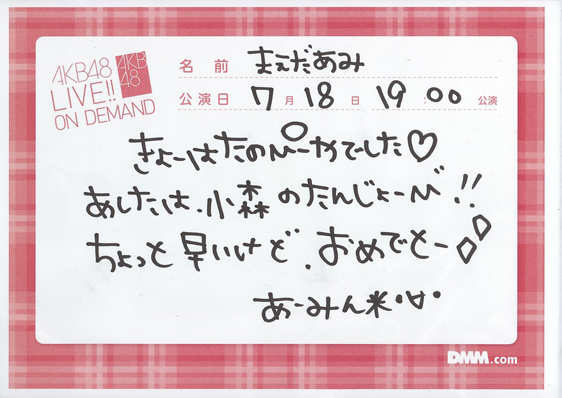 AKB48
LIVE!!
ON DEMAND
AKB
48
名前 まえだあみ
公演日 7月18日 19:00 公演
きょーはたの
でした♡
あしたは、小森のたんじょー
!!
ちょっと早いけど、おめでとー
あーみん米・∀・
DMM.com